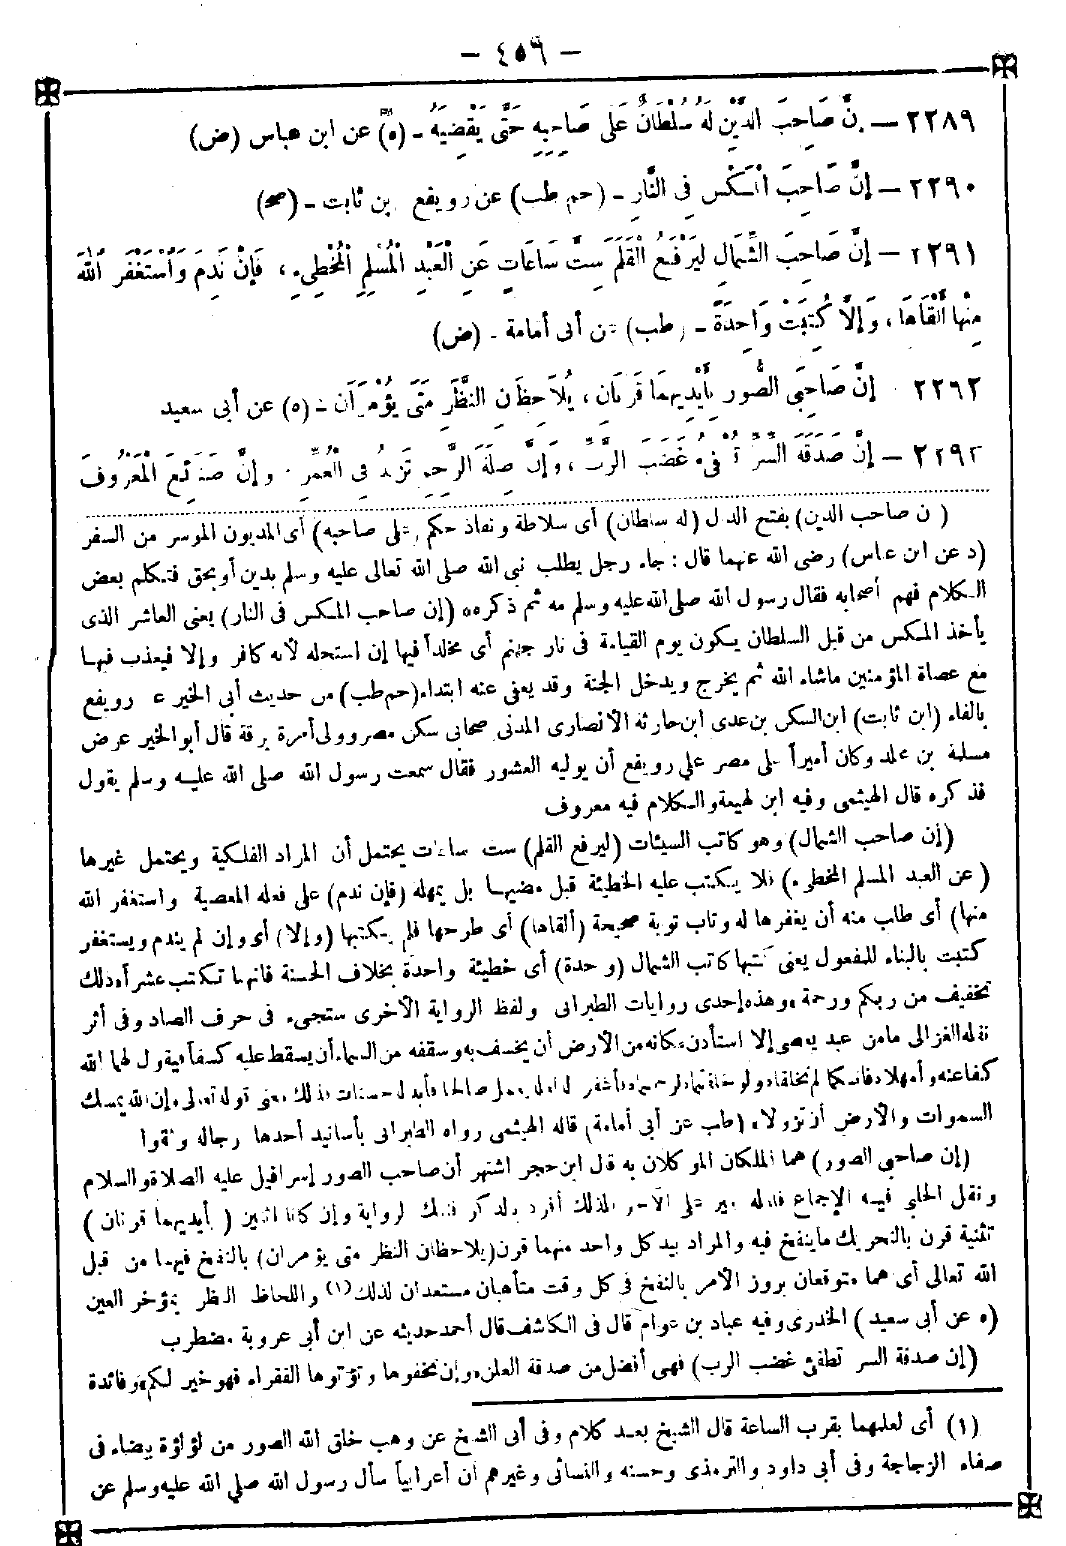 – ٤٥٩ –
٢٢٨٩ — إِنَّ صَاحِبَ الدَّيْنِ لَهُ سُلْطَانٌ عَلَى صَاحِبِهِ حَتَّى يَقْضِيَهُ - (ه) عن ابن عباس (ض)
٢٢٩٠ — إِنَّ صَاحِبَ الْمَكْسِ فِي النَّارِ - (حم طب) عن رويفع بن ثابت - (صح)
٢٢٩١ — إِنَّ صَاحِبَ الشِّمَالِ لَيَرْفَعُ الْقَلَمَ سِتَّ سَاعَاتٍ عَنِ الْعَبْدِ الْمُسْلِمِ الْمُخْطِيءِ، فَإِنْ نَدِمَ وَاسْتَغْفَرَ اللَّهَ
مِنْهَا أَلْقَاهَا، وَإِلَّا كُتِبَتْ وَاحِدَةً - (طب) عن أبى أمامة - (ض)
٢٢٩٢ إِنَّ صَاحِبَيِ الصُّورِ بِأَيْدِيهِمَا قَرْنَانِ، يُلَاحِظَانِ النَّظَرَ مَتَى يُؤْمَرَانِ - (ه) عن أبى سعيد
٢٢٩٣ — إِنَّ صَدَقَةَ السِّرِّ تُطْفِيءُ غَضَبَ الرَّبِّ، وَإِنَّ صِلَةَ الرَّحِمِ تَزِيدُ فِي الْعُمُرِ، وَإِنَّ صَنَائِعَ الْمَعْرُوفِ
(إن صاحب الدين) بفتح الدال (له سلطان) أى سلاطة ونفاذ حكم (على صاحبه) أى المديون الموسر من السفر
(ه عن ابن عباس) رضى الله عنهما قال: جاء رجل يطلب نبى الله صلى الله تعالى عليه وسلم بدين أو بحق فتكلم بعض
الكلام فهم أصحابه فقال رسول الله صلى الله عليه وسلم مه ثم ذكره (إن صاحب المكس فى النار) يعنى العاشر الذى
يأخذ المكس من قبل السلطان يكون يوم القيامة فى نار جهنم أى مخلداً فيها إن استحله لأنه كافر وإلا فيعذب فيها
مع عصاة المؤمنين ماشاء الله ثم يخرج ويدخل الجنة وقد يعفى عنه ابتداء (حم طب) من حديث أبى الخير عن رويفع
بالفاء (ابن ثابت) ابن السكن بن عدى ابن حارثة الأنصارى المدنى صحابى سكن مصر وولى أمرة برقة قال أبو الخير عرض
مسلمة بن مخلد وكان أميراً على مصر على رويفع أن يوليه العشور فقال سمعت رسول الله صلى الله عليه وسلم يقول
فذكره قال الهيثمى وفيه ابن لهيعة والكلام فيه معروف
(إن صاحب الشمال) وهو كاتب السيئات (ليرفع القلم) ست ساعات يحتمل أن المراد الفلكية ويحتمل غيرها
(عن العبد المسلم المخطىء) فلا يكتب عليه الخطيئة قبل مضيها بل يمهله (فإن ندم) على فعله المعصية واستغفر الله
منها) أى طلب منه أن يغفرها له وتاب توبة صحيحة (ألقاها) أى طرحها فلم يكتبها (وإلا) أى وإن لم يندم ويستغفر
كتبت بالبناء للمفعول يعنى كتبها كاتب الشمال (واحدة) أى خطيئة واحدة بخلاف الحسنة فانها تكتب عشراً ذلك
تخفيف من ربكم ورحمة وهذه إحدى روايات الطبرانى ولفظ الرواية الأخرى ستجىء فى حرف الصاد وفى أثر
نقله الغزالى مامن عبد يعصى إلا استأذن مكانه من الأرض أن يخسف به وسقفه من السماء أن يسقط عليه كسفاً فيقول لهما الله
كفا عنه وأمهلاه فانكما لم تخلقاه ولو خلقتماه لرحمتماه فأغفر له ولعله يعمل صالحا فأبدله حسنات فذلك معنى قوله تعالى إن الله يمسك
السموات والأرض أن تزولا (طب عن أبى أمامة) قال الهيثمى رواه الطبرانى بأسانيد أحدها رجاله وثقوا
(إن صاحبى الصور) هما الملكان الموكلان به قال ابن حجر اشتهر أن صاحب الصور إسرافيل عليه الصلاة والسلام
ونقل الحليمى فيه الإجماع فلعله أمير على الآخر فلذلك أفرد بالذكر فى تلك الرواية وإن كانا اثنين (بأيديهما قرنان)
تثنية قرن بالتحريك ماينفخ فيه والمراد بيد كل واحد منهما قرن (يلاحظان النظر متى يؤمران) بالنفخ فيهما من قبل
الله تعالى أى هما متوقعان بروز الأمر بالنفخ فى كل وقت متأهبان مستعدان لذلك (١) واللحاظ النظر بمؤخر العين
(ه عن أبى سعيد) الخدرى وفيه عباد بن عوام قال فى الكاشف قال أحمد حديثه عن ابن أبى عروبة مضطرب
(إن صدقة السر تطفئ غضب الرب) فهى أفضل من صدقة العلن وإن تخفوها وتؤتوها الفقراء فهو خير لكم وفائدة
(١) أى لعلهما بقرب الساعة قال الشيخ بعد كلام وفى أبى الشيخ عن وهب خلق الله الصور من لؤلؤة بيضاء فى
صفاء الزجاجة وفى أبى داود والترمذى وحسنه والنسائى وغيرهم أن أعرابياً سأل رسول الله صلى الله عليه وسلم عن